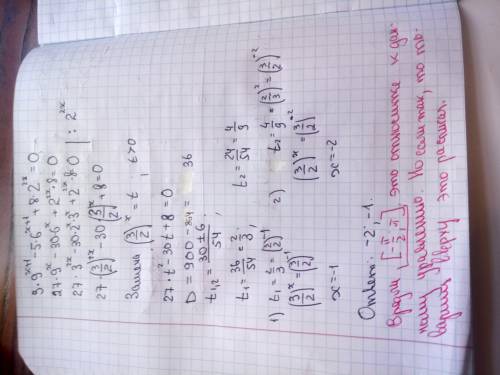 3·9^(x+1) - 5·6^(x+1) + 8·2^(2x) = 0
27·9^x - 30·6^x + 2^(2x)·8 = 0
27·3^(2x) - 30·2^x·3^x + 2^(2x)·8 = 0 | : 2^(2x)
27 (3/2)^(2x) - 30 (3/2)^x + 8 = 0
Замена (3/2)^x = t, t>0
27t² - 30t + 8 = 0
D = 900 - 864 = 36
t₁,₂ = (30 ± 6)/54;
t₁ = 36/54 = 2/3, t₂ = 24/54 = 4/9
1) t₁ = 2/3 = (3/2)^-1 2) t₂ = 4/9 = (2/3)² = (3/2)^-2
(3/2)^x = (3/2)^-1 (3/2)^x = (3/2)^-2
x = -1 x = -2
Ответ: -2; -1.
Вроди [-π/2; π], это относитке к дан-
ному уравнению. Но если так, то то-
варищ сверху это расписал.